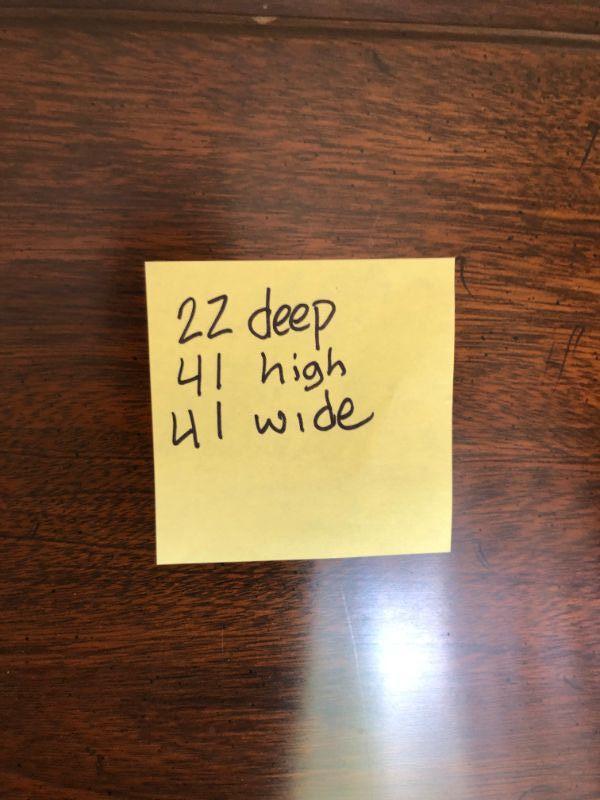 22 deep
41 high
41 wide